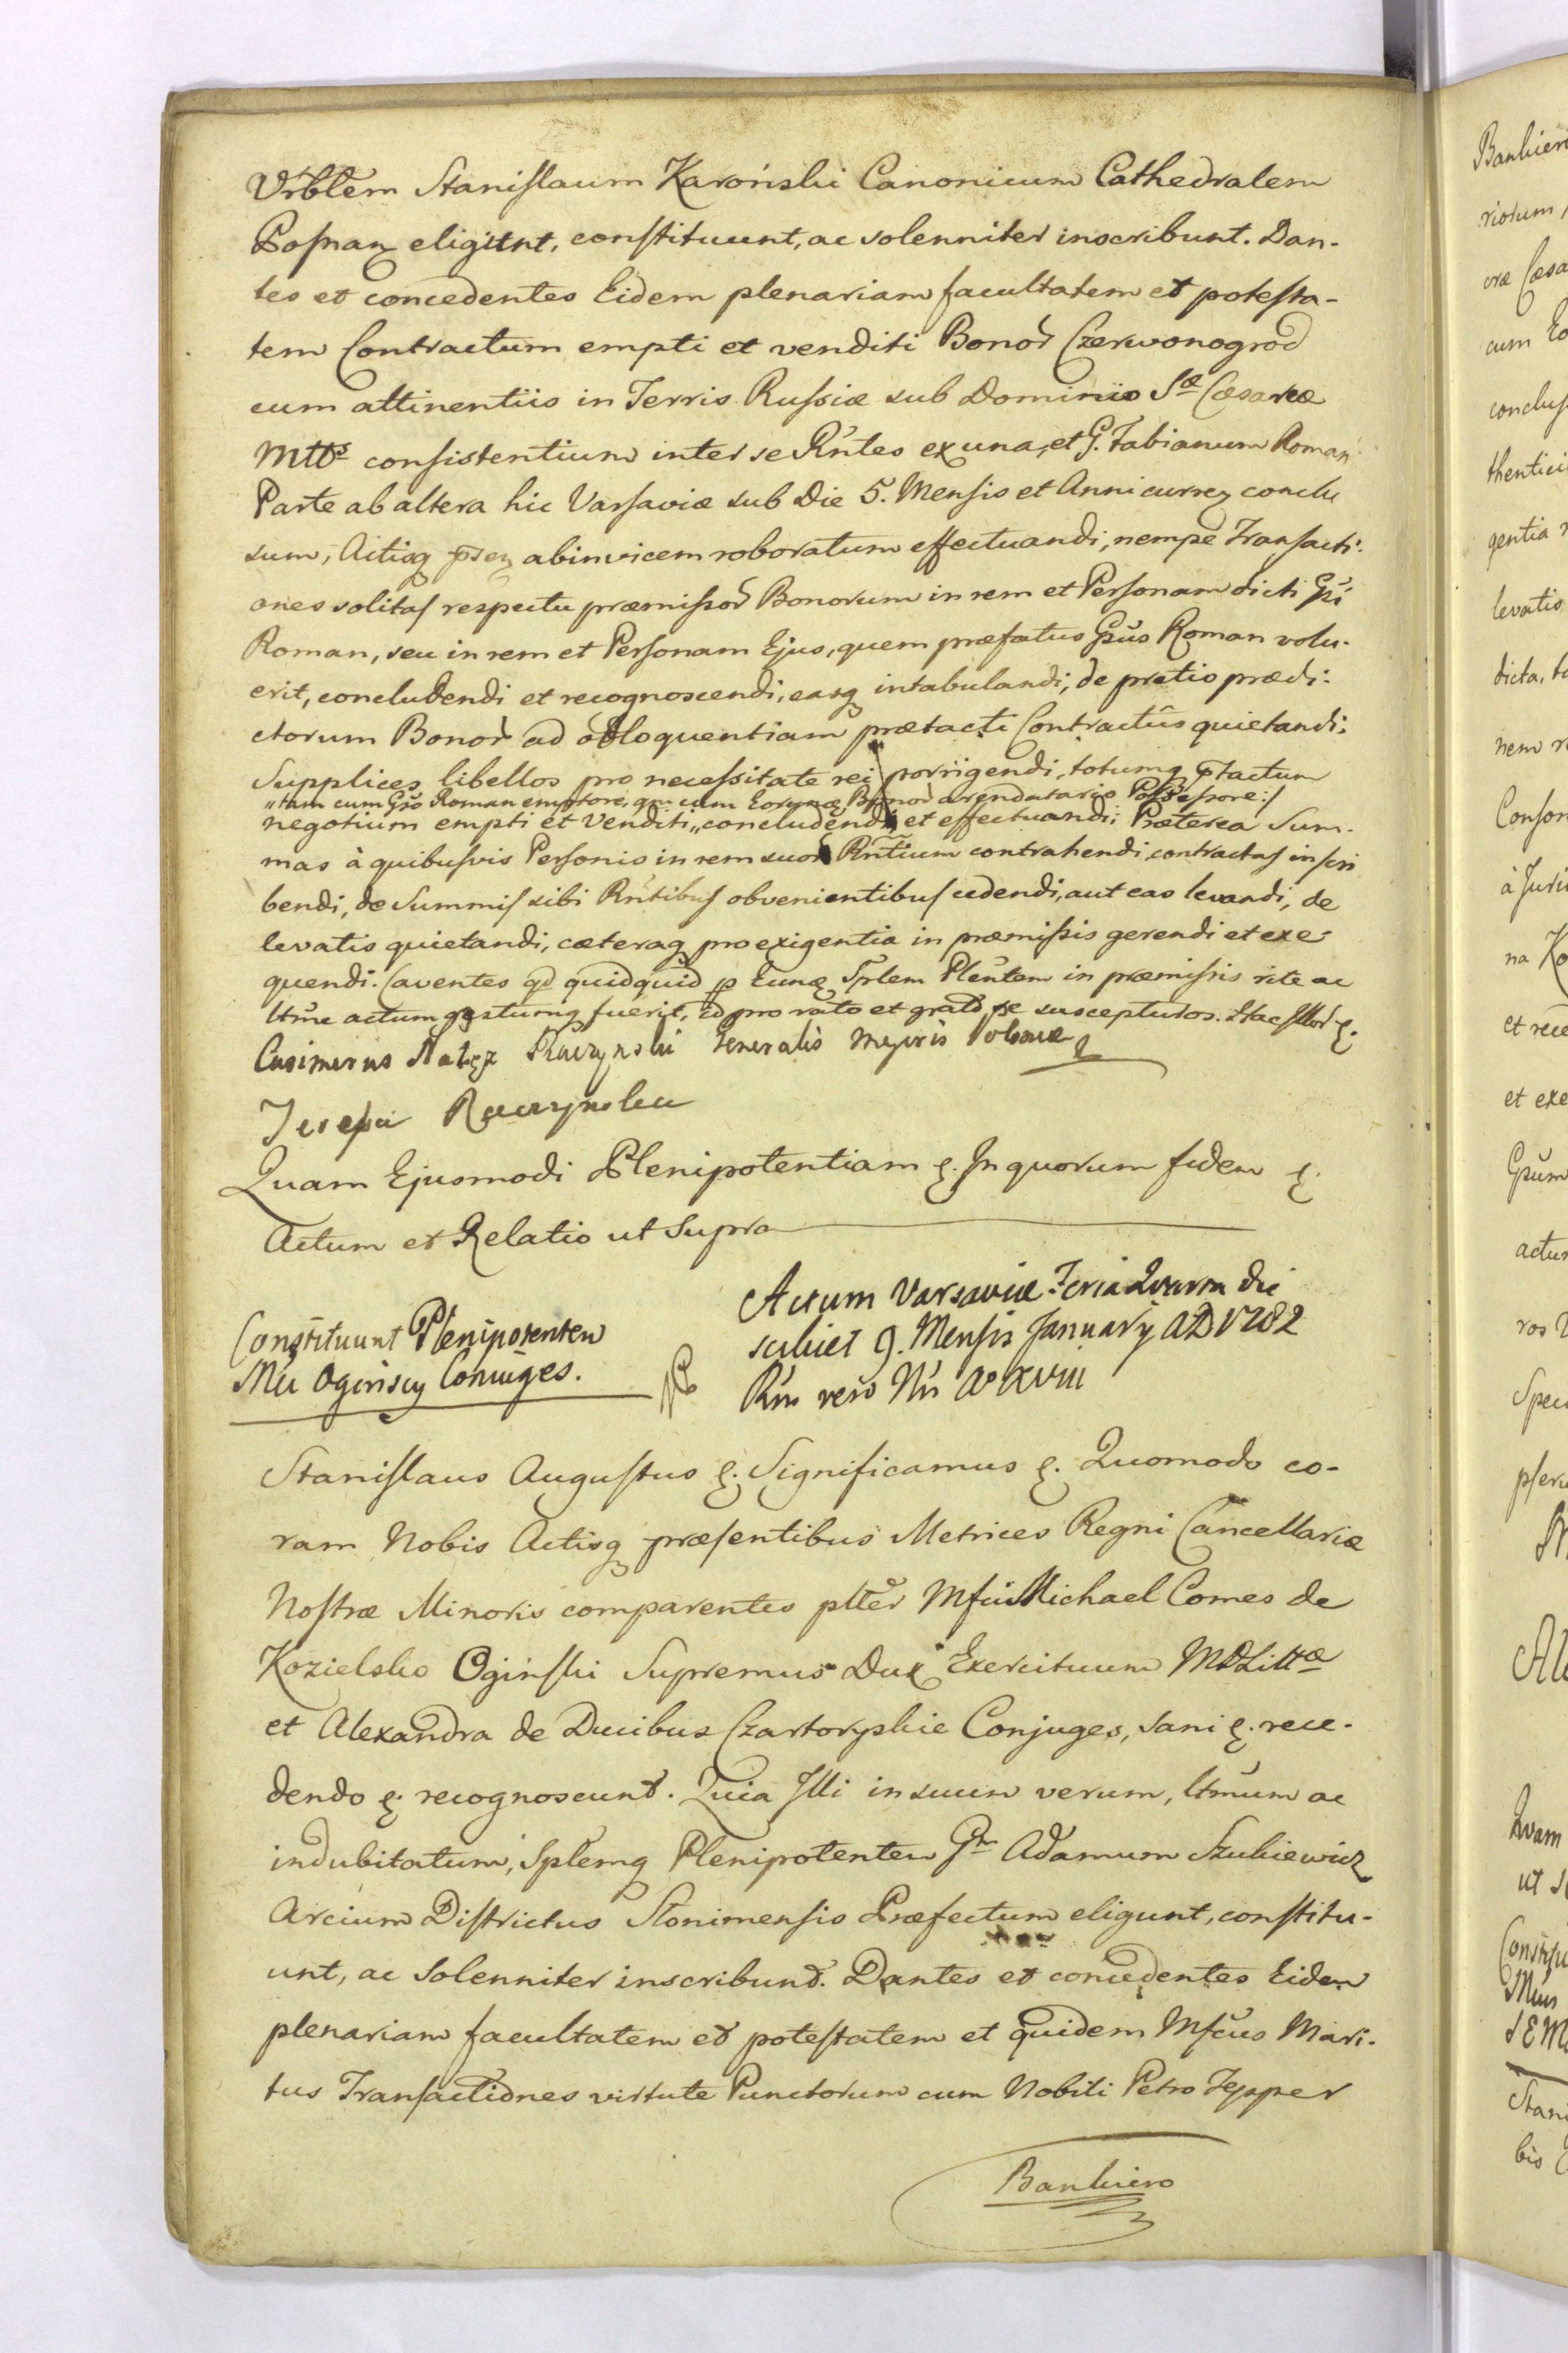 Vrblem Stanislaum Karoński Canonicum Cathedralem
Posnan eligunt, constituunt, ac solenniter inscribunt. Dan-
tes et concedentes Eidem plenariam facultatem et potesta-
tem Contractum empti et venditi Bonor Czerwonogrod
cum attinentiis in Terris Russiæ sub Dominio Sæ Cæsareæ
Mttis consistentium inter se Rntes ex una, et G. Fabianum Roman
Parte ab altera hic Varsaviæ sub Die 5. Mensis et Anni curren conclu
sum, Actisq psen abinvicem roboratum effectuandi, nempe Transacti-
ones solitas respectu præmissor Bonorum in rem et Personam dicti Gsi
Roman, seu in rem et Personam Ejus, quem præfatus Gsus Roman volu-
erit, concludendi et recognoscendi, easq intabulandi, de pretio prædi-
ctorum Bonor ad obloquentiam prætacti Contractûs quietandi;
Supplices libellos pro necessitate rei porrigendi, totumq ptactum
"tam cum Gso Roman emptore, qm cum Eorumq Bonor arendatario Possessore:/
negotium empti et Venditi,, concludendi, et effectuandi; Præterea Sum-
mas à quibusvis Personis in rem suor Rntium contrahendi, contractas inscri
bendi, de Summis sibi Rntibus obvenientibus cedendi, aut eas levandi, de
levatis quietandi, cæteraq pro exigentia in præmissis gerendi et exe-
quendi. Caventes qd quidquid p Eunq Splem Plentem in præmissis rite ac
ltme actum gestumq fuerit, id pro rato et grato se suscepturos. Hac Illor &.
Casimirus Nałęcz Raczynski Generalis Mjoris Poloniæ
Teresa Raczynska
Quam Ejusmodi Plenipotentiam &. In quorum fidem &.
Actum et Relatio ut Supra
Constituunt Plenipotentem
Mci Ogińscy Coniuges.
Actum Varsaviæ Feria Quarta die
scilicet 9. Mensis January AD 1782
Rni vero Nri Ao XVIII
Stanislaus Augustus &. Significamus &. Quomodo co-
ram Nobis Actisq præsentibus Metrices Regni Cancellariæ
Nostræ Minoris comparentes plter Mfcus Michael Comes de
Kozielsko Ogiński Supremus Dux Exercituum MDLittæ
et Alexandra de Ducibus Czartoryskie Conjuges, sani &. rece-
dendo &. recognoscunt. Quia Illi in suum verum, ltmum ac
indubitatum, Splemq Plenipotentem Gm Adamum Szukiewicz
Arcium Districtus Slonimensis Præfectum eligunt, constitu-
unt, ac Solenniter inscribunt. Dantes et concedentes Eidem
plenariam facultatem et potestatem et quidem Mfcus Mari-
tus Transactiones virtute Punctorum cum Nobili Petro Tepper
Bankiero